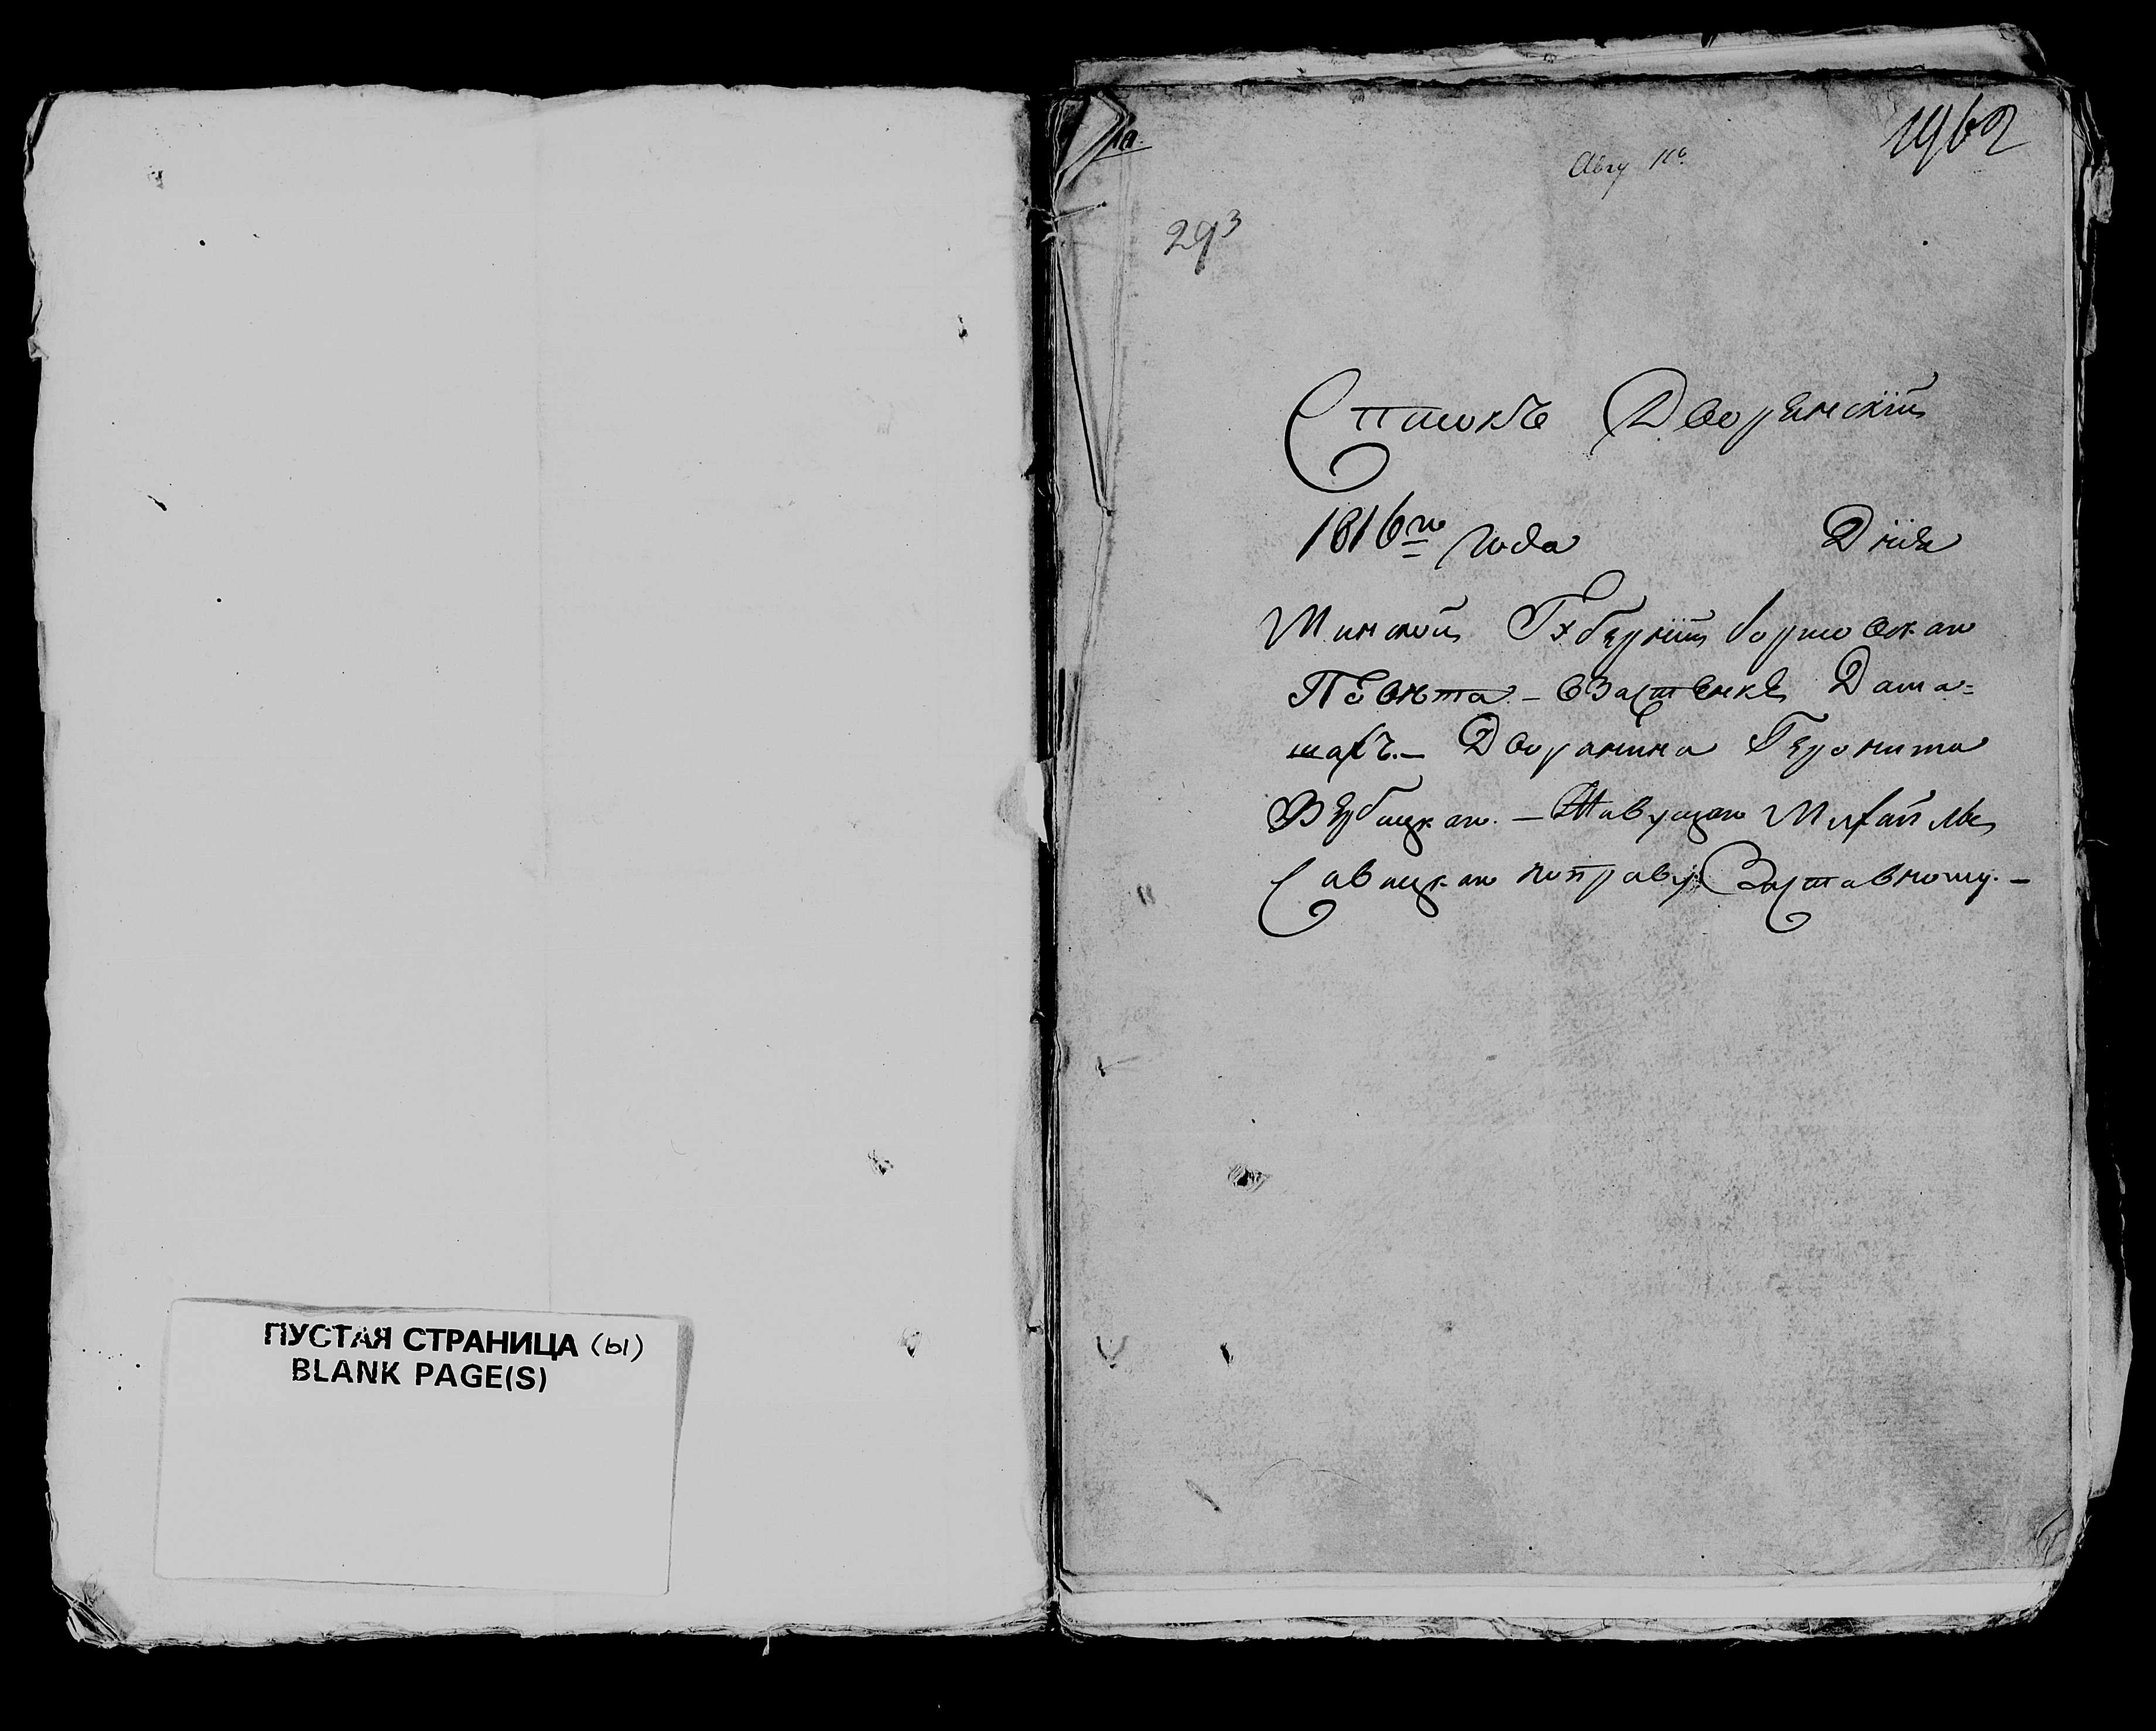 ПУСТАЯ СТРАНИЦА (ы)
BLANK PAGE(S)
1962
Авгу 11го
293
Списокъ Дворянскій
1816го года Днія
Минской Губерніи Борисовскаго
Повѣта. – в Застенкѣ Дама=
шахъ. – Дворянина Геронима
Вербицкаго. – Живущаго Михайлы
Савицкаго по праву Заставному. –